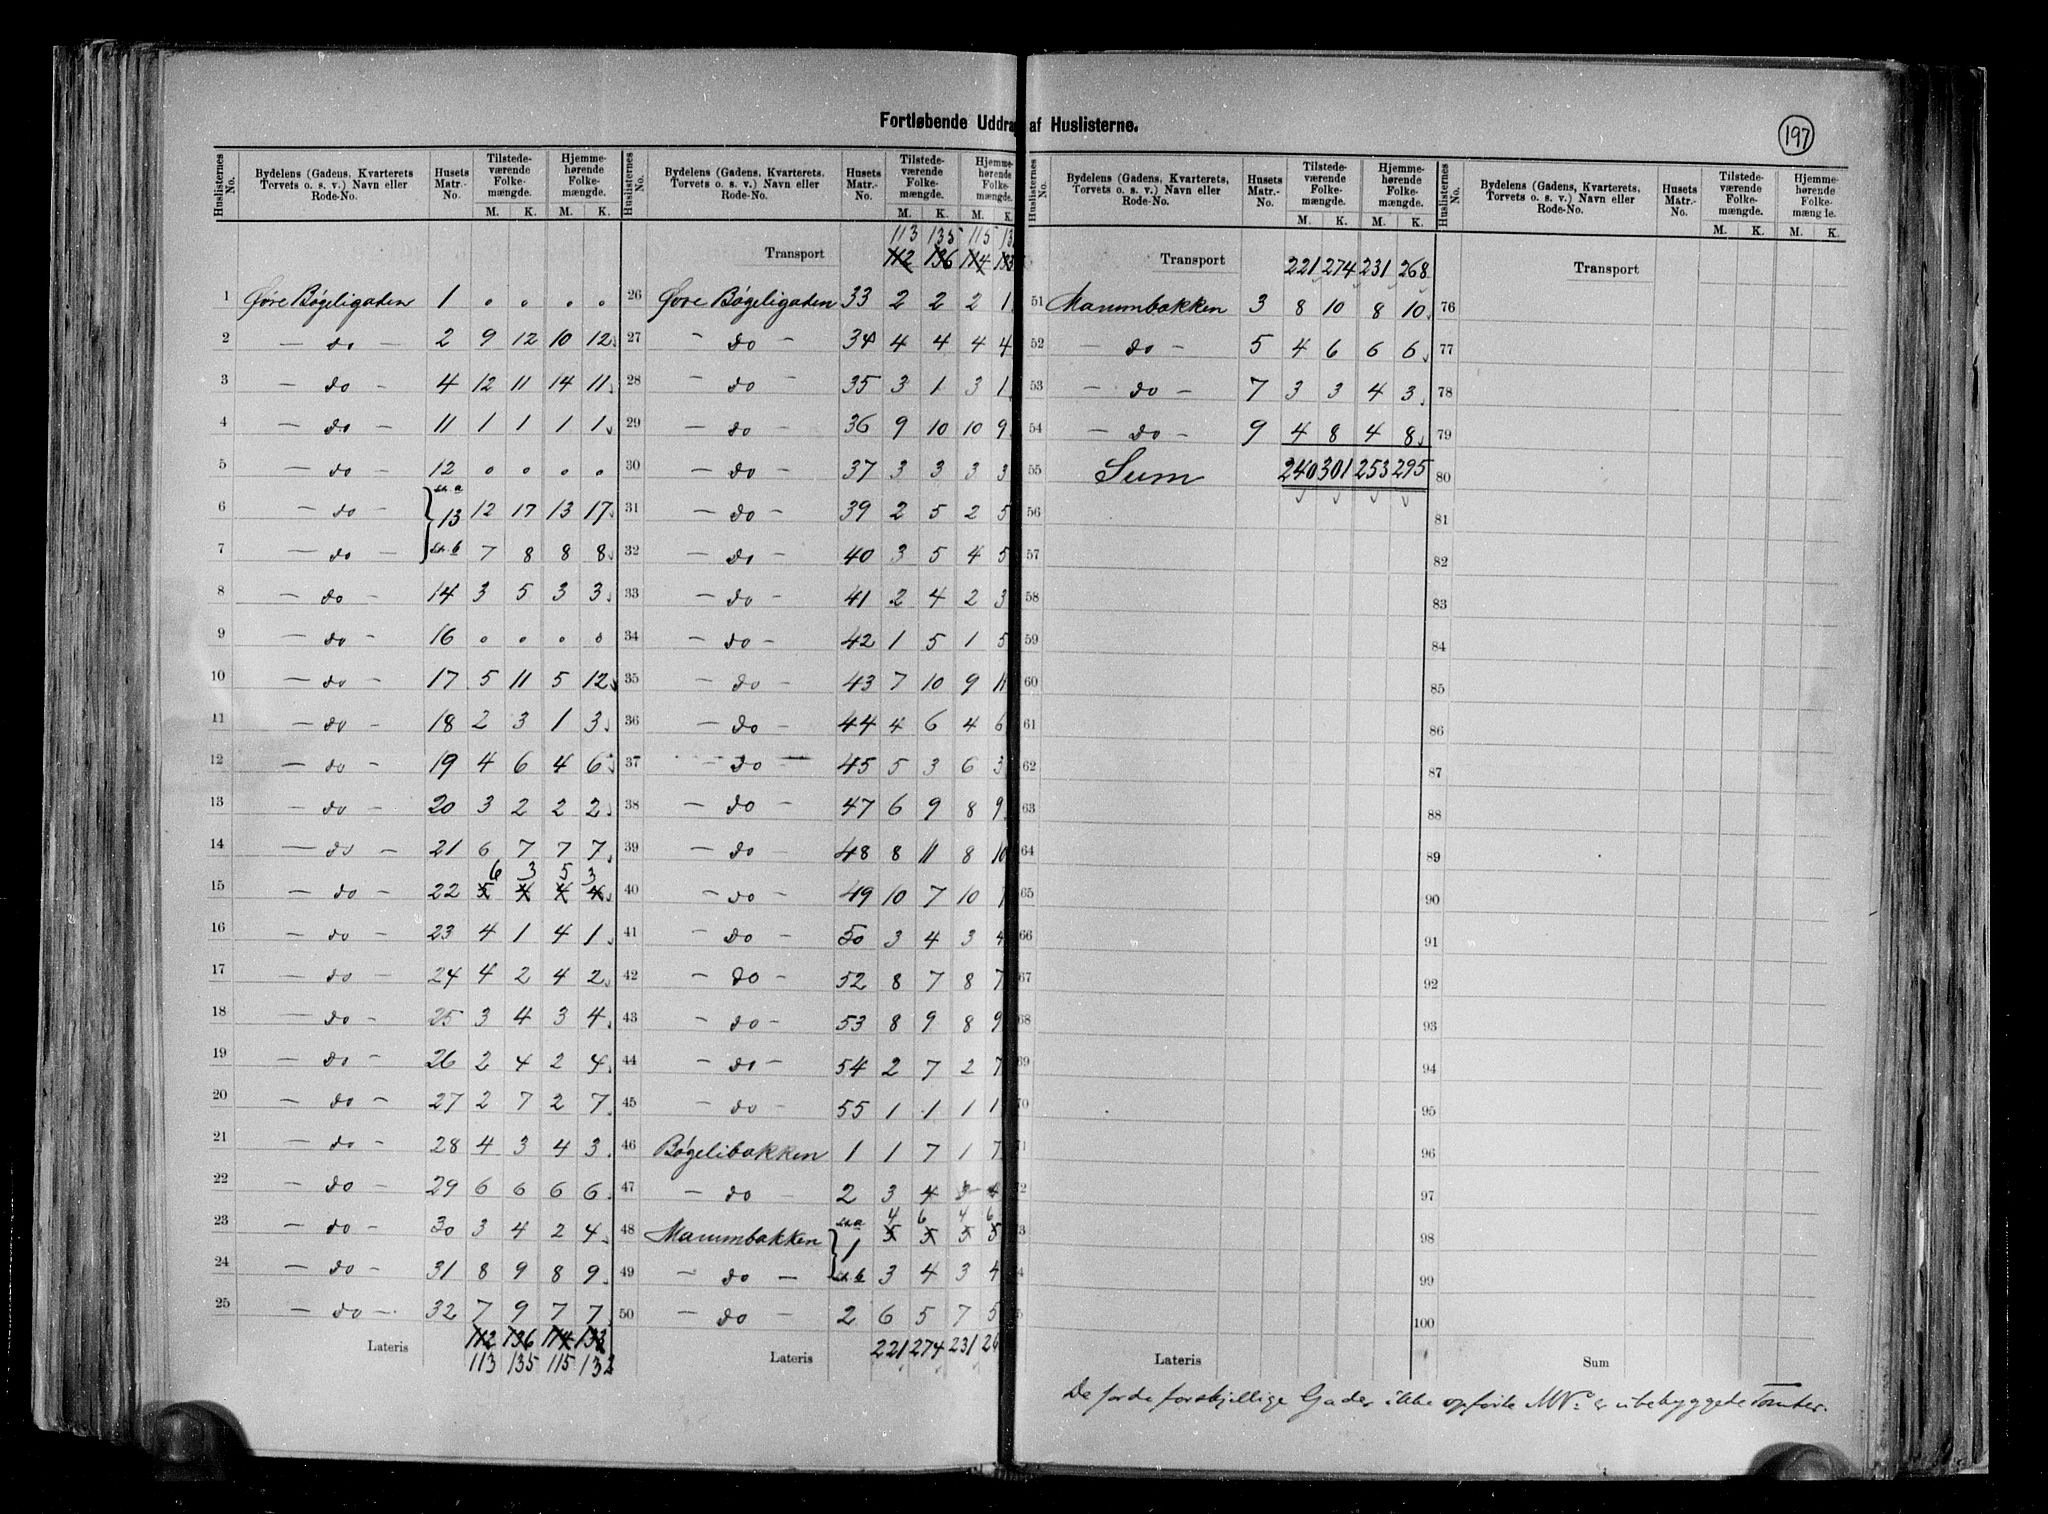 197
Fortløbende Uddra af Huslisterne.
Huslisternes No. Bydelens (Gadens, Kvarterets, Torvets o. s. v.) Navn eller Rode-No. Husets Matr.-No. Tilstedeværende Folkemængde. M. K. Hjemmehørende Folkemængde. M. K.
1 Øvre Bøgeligaden 1 0 0 0 0
2 — do — 2 9 12 10 12
3 — do — 4 12 11 14 11
4 — do — 11 1 1 1 1
5 — do — 12 0 0 0 0
6 — do — 13 12 17 13 17
7 — do — 7 8 8 8
8 — do — 14 3 5 3 3
9 — do — 16 0 0 0 0
10 — do — 17 5 11 5 12
11 — do — 18 2 3 1 3
12 — do — 19 4 6 4 6
13 — do — 20 3 2 2 2
14 — do — 21 6 7 7 7
6 3 5 3
15 — do — 22 5 4 4 4
16 — do — 23 4 1 4 1
17 — do — 24 4 2 4 2
18 — do — 25 3 4 3 4
19 — do — 26 2 4 2 4
20 — do — 27 2 7 2 7
21 — do — 28 4 3 4 3
22 — do — 29 6 6 6 6
23 — do — 30 3 4 2 4
24 — do — 31 8 9 8 9
25 — do — 32 7 9 7 7
Lateris 112 136 114 133
113 135 115 132
Huslisternes No. Bydelens (Gadens, Kvarterets, Torvets o. s. v.) Navn eller Rode-No. Husets Matr.-No. Tilstedeværende Folkemængde. M. K. Hjemmehørende Folkemængde. M. K.
113 135 115 13
Transport 112 136 114 133
26 Øvre Bøgeligaden 33 2 2 2 1
27 — do — 34 4 4 4 4
28 — do — 35 3 1 3 1
29 — do — 36 9 10 10 9
30 — do — 37 3 3 3 3
31 — do — 39 2 5 2 5
32 — do — 40 3 5 4 5
33 — do — 41 2 4 2 3
34 — do — 42 1 5 1 5
35 — do — 43 7 10 9 11
36 — do — 44 4 6 4 6
37 — do — 45 5 3 6 3
38 — do — 47 6 9 8 9
39 — do — 48 8 11 8 10
40 — do — 49 10 7 10 7
41 — do — 50 3 4 3 4
42 — do — 52 8 7 8 7
43 — do — 53 8 9 8 9
44 — do — 54 2 7 2 7
45 — do — 55 1 1 1 1
46 Bøgelibakken 1 1 7 1 7
47 — do — 2 3 4 3 4
4 6 4 6
48 Marumbakken 1 5 5 5 5
49 — do — 3 4 3 4
50 — do — 2 6 5 7 5
Lateris 221 274 231 26
Huslisternes No. Bydelens (Gadens, Kvarterets, Torvets o. s. v.) Navn eller Rode-No. Husets Matr.-No. Tilstedeværende Folkemængde. M. K. Hjemmehørende Folkemængde. M. K.
Transport 221 274 231 268
51 Marumbakken 3 8 10 8 10
52 — do — 5 4 6 6 6
53 — do — 7 3 3 4 3
54 — do — 9 4 8 4 8
55 Sum 240 301 253 295
56
57
58
59
60
61
62
63
64
65
66
67
68
69
70
71
72
73
74
75
Lateris
Huslisternes No. Bydelens (Gadens, Kvarterets, Torvets o. s. v.) Navn eller Rode-No. Husets Matr.-No. Tilstedeværende Folkemængde. M. K. Hjemmehørende Folkemængde. M. K.
Transport
76
77
78
79
80
81
82
83
84
85
86
87
88
89
90
91
92
93
94
95
96
97
98
99
100
Sum
De for de forskjellige Gader ikke opførte MN: er ubebyggede Tomter.